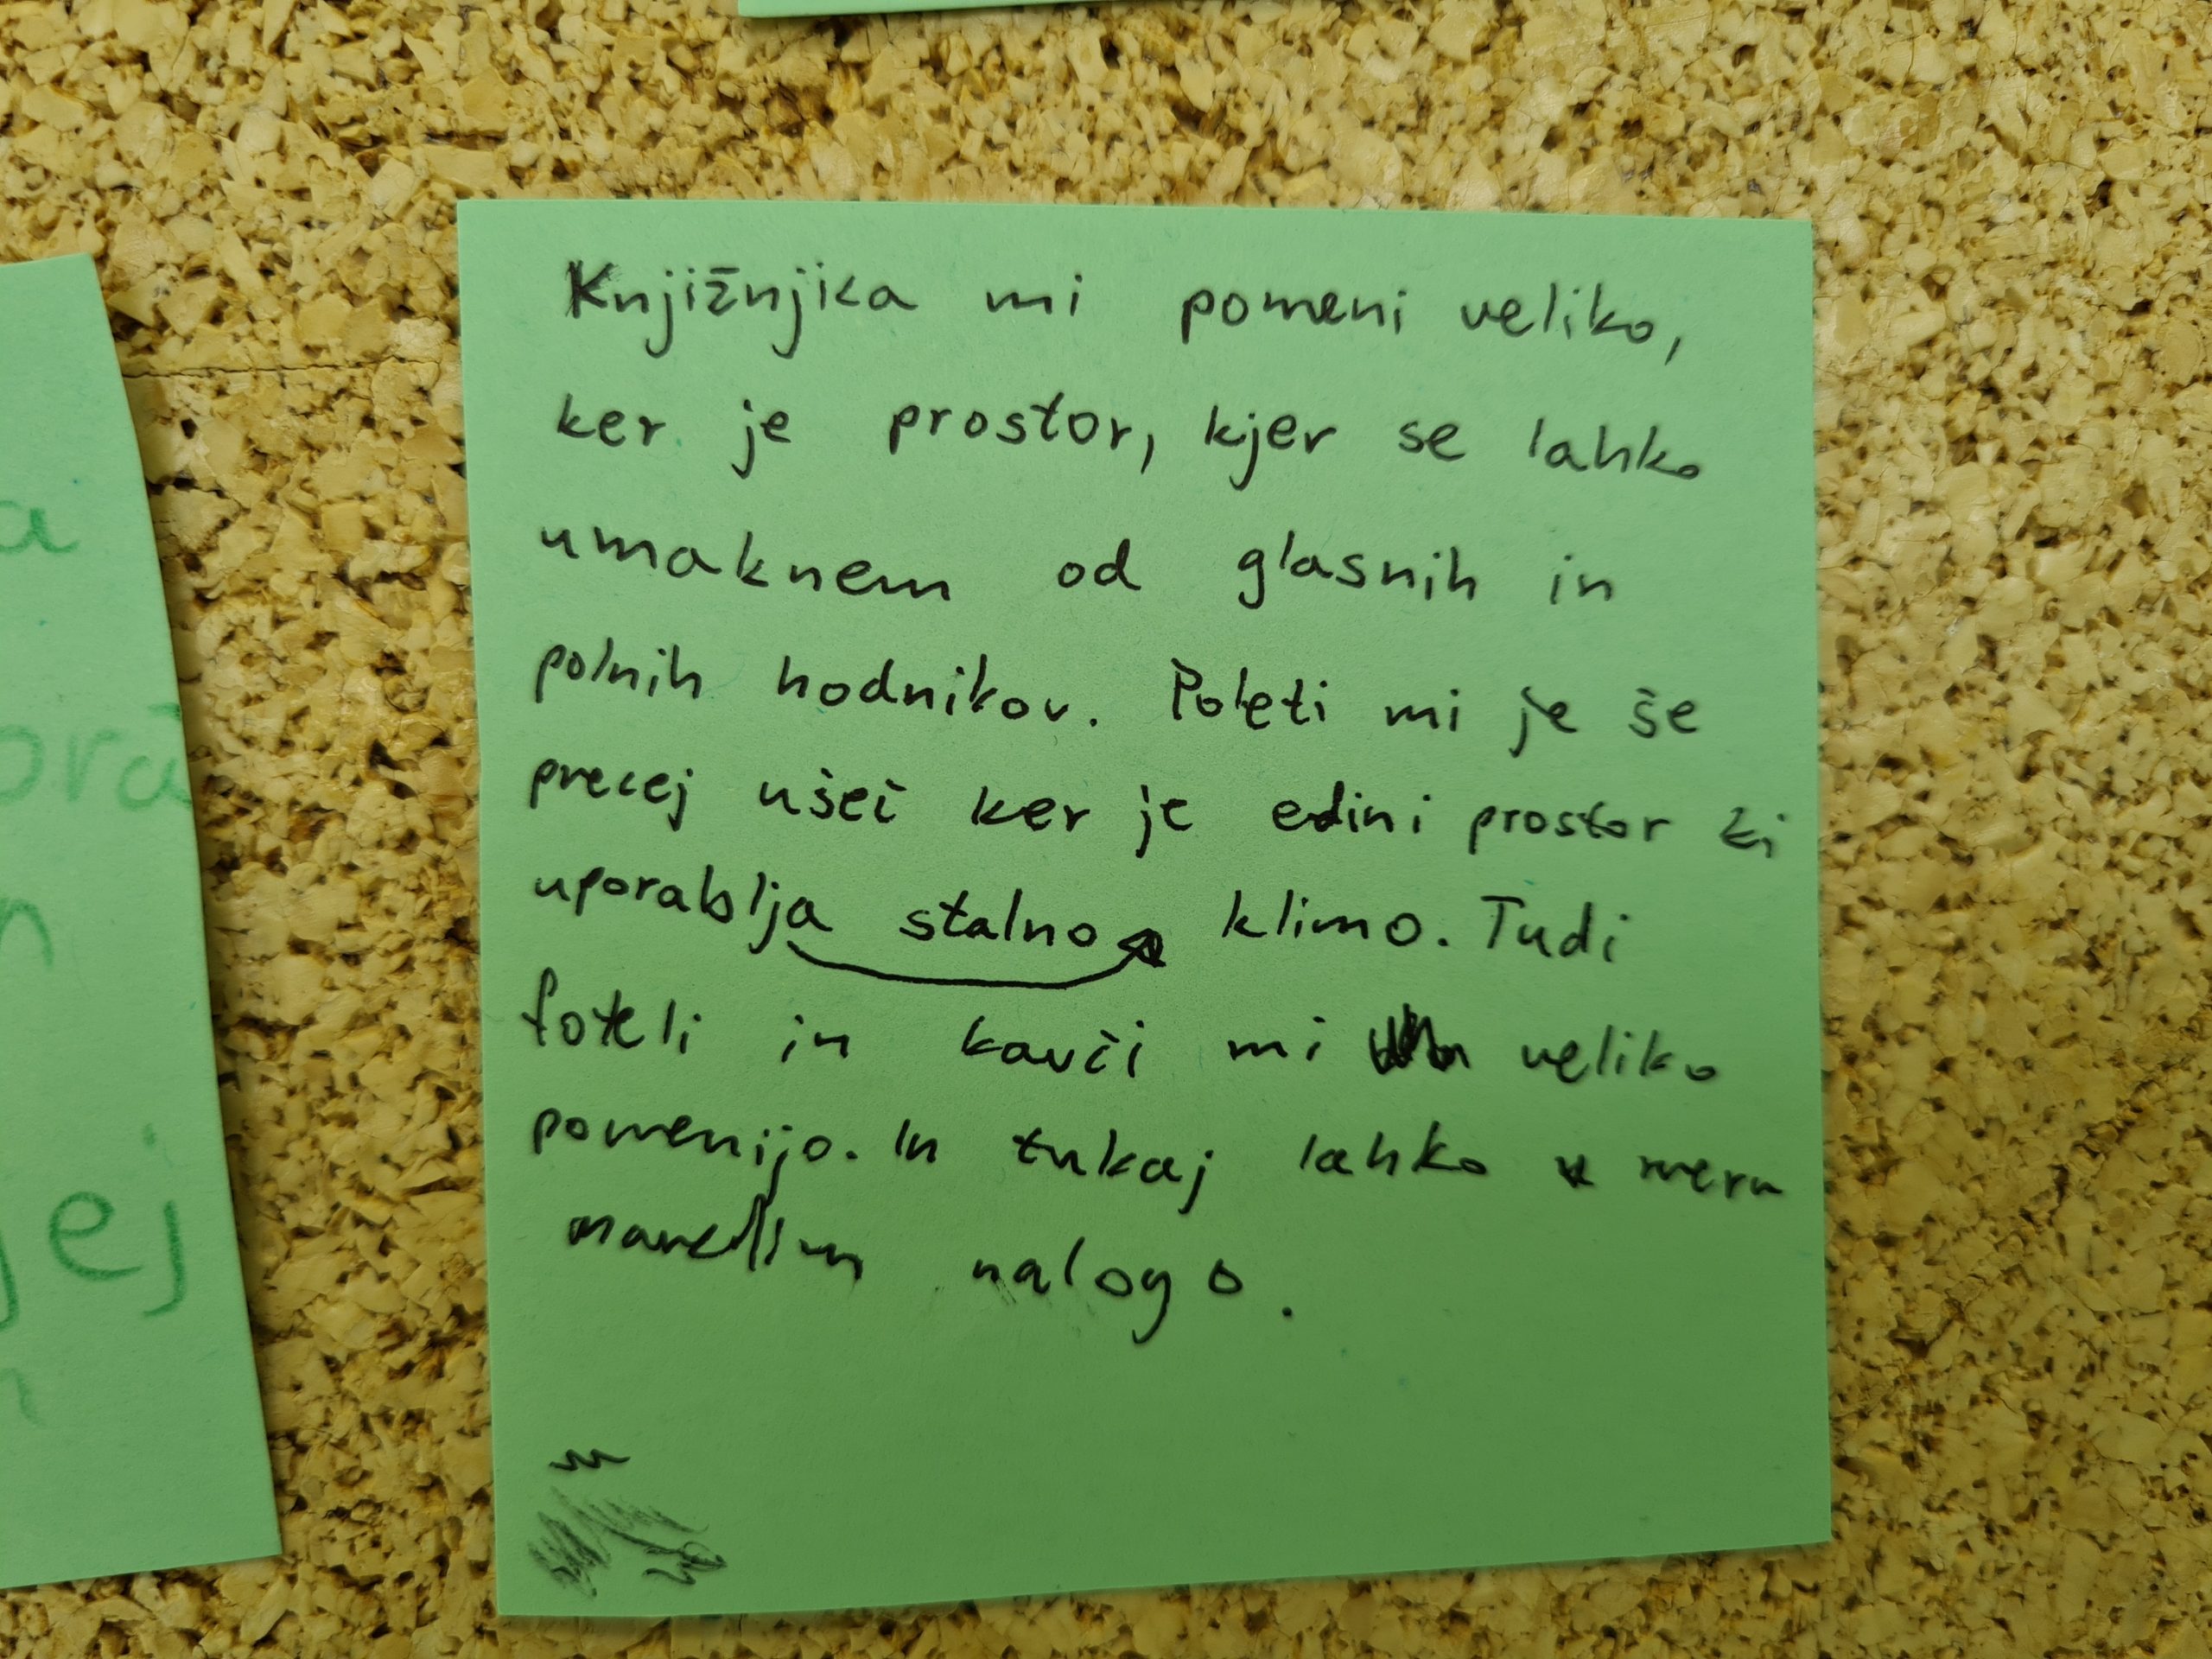 Knjižnjica mi pomeni veliko,
ker je prostor, kjer se lahko
umaknem od glasnih in
polnih hodnikov. Poleti mi je še
precej všeč ker je edini prostor ki
uporablja stalno klimo. Tudi
foteli in kavči mi veliko
pomenijo. In tukaj lahko v miru
naredim nalogo.
a
ora
n
jej